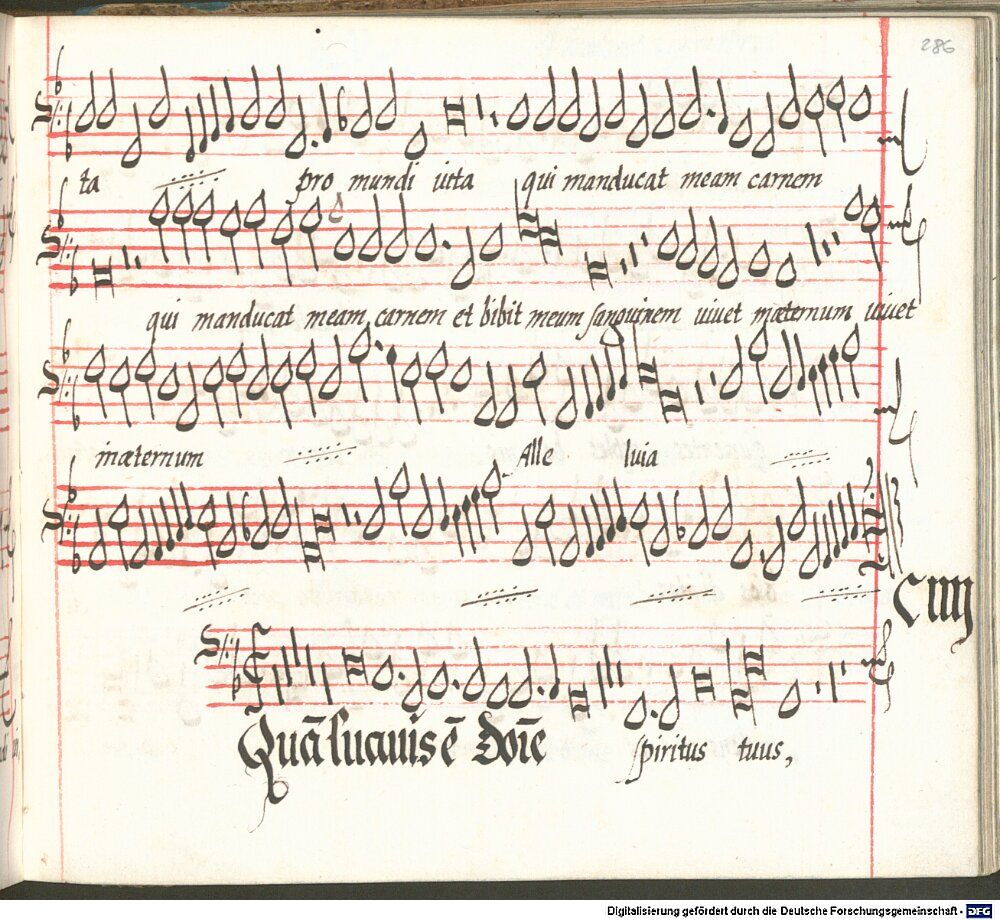 286
ta pro mundi uita qui manducat meam carnem
qui manducat meam carnem et bibit meum sanguinem uiuet inæternum uiuet
inæternum Alle luia
C iiij
Quā suauis ē Dōīe spiritus tuus,
Digitalisierung gefördert durch die Deutsche Forschungsgemeinschaft - DFG